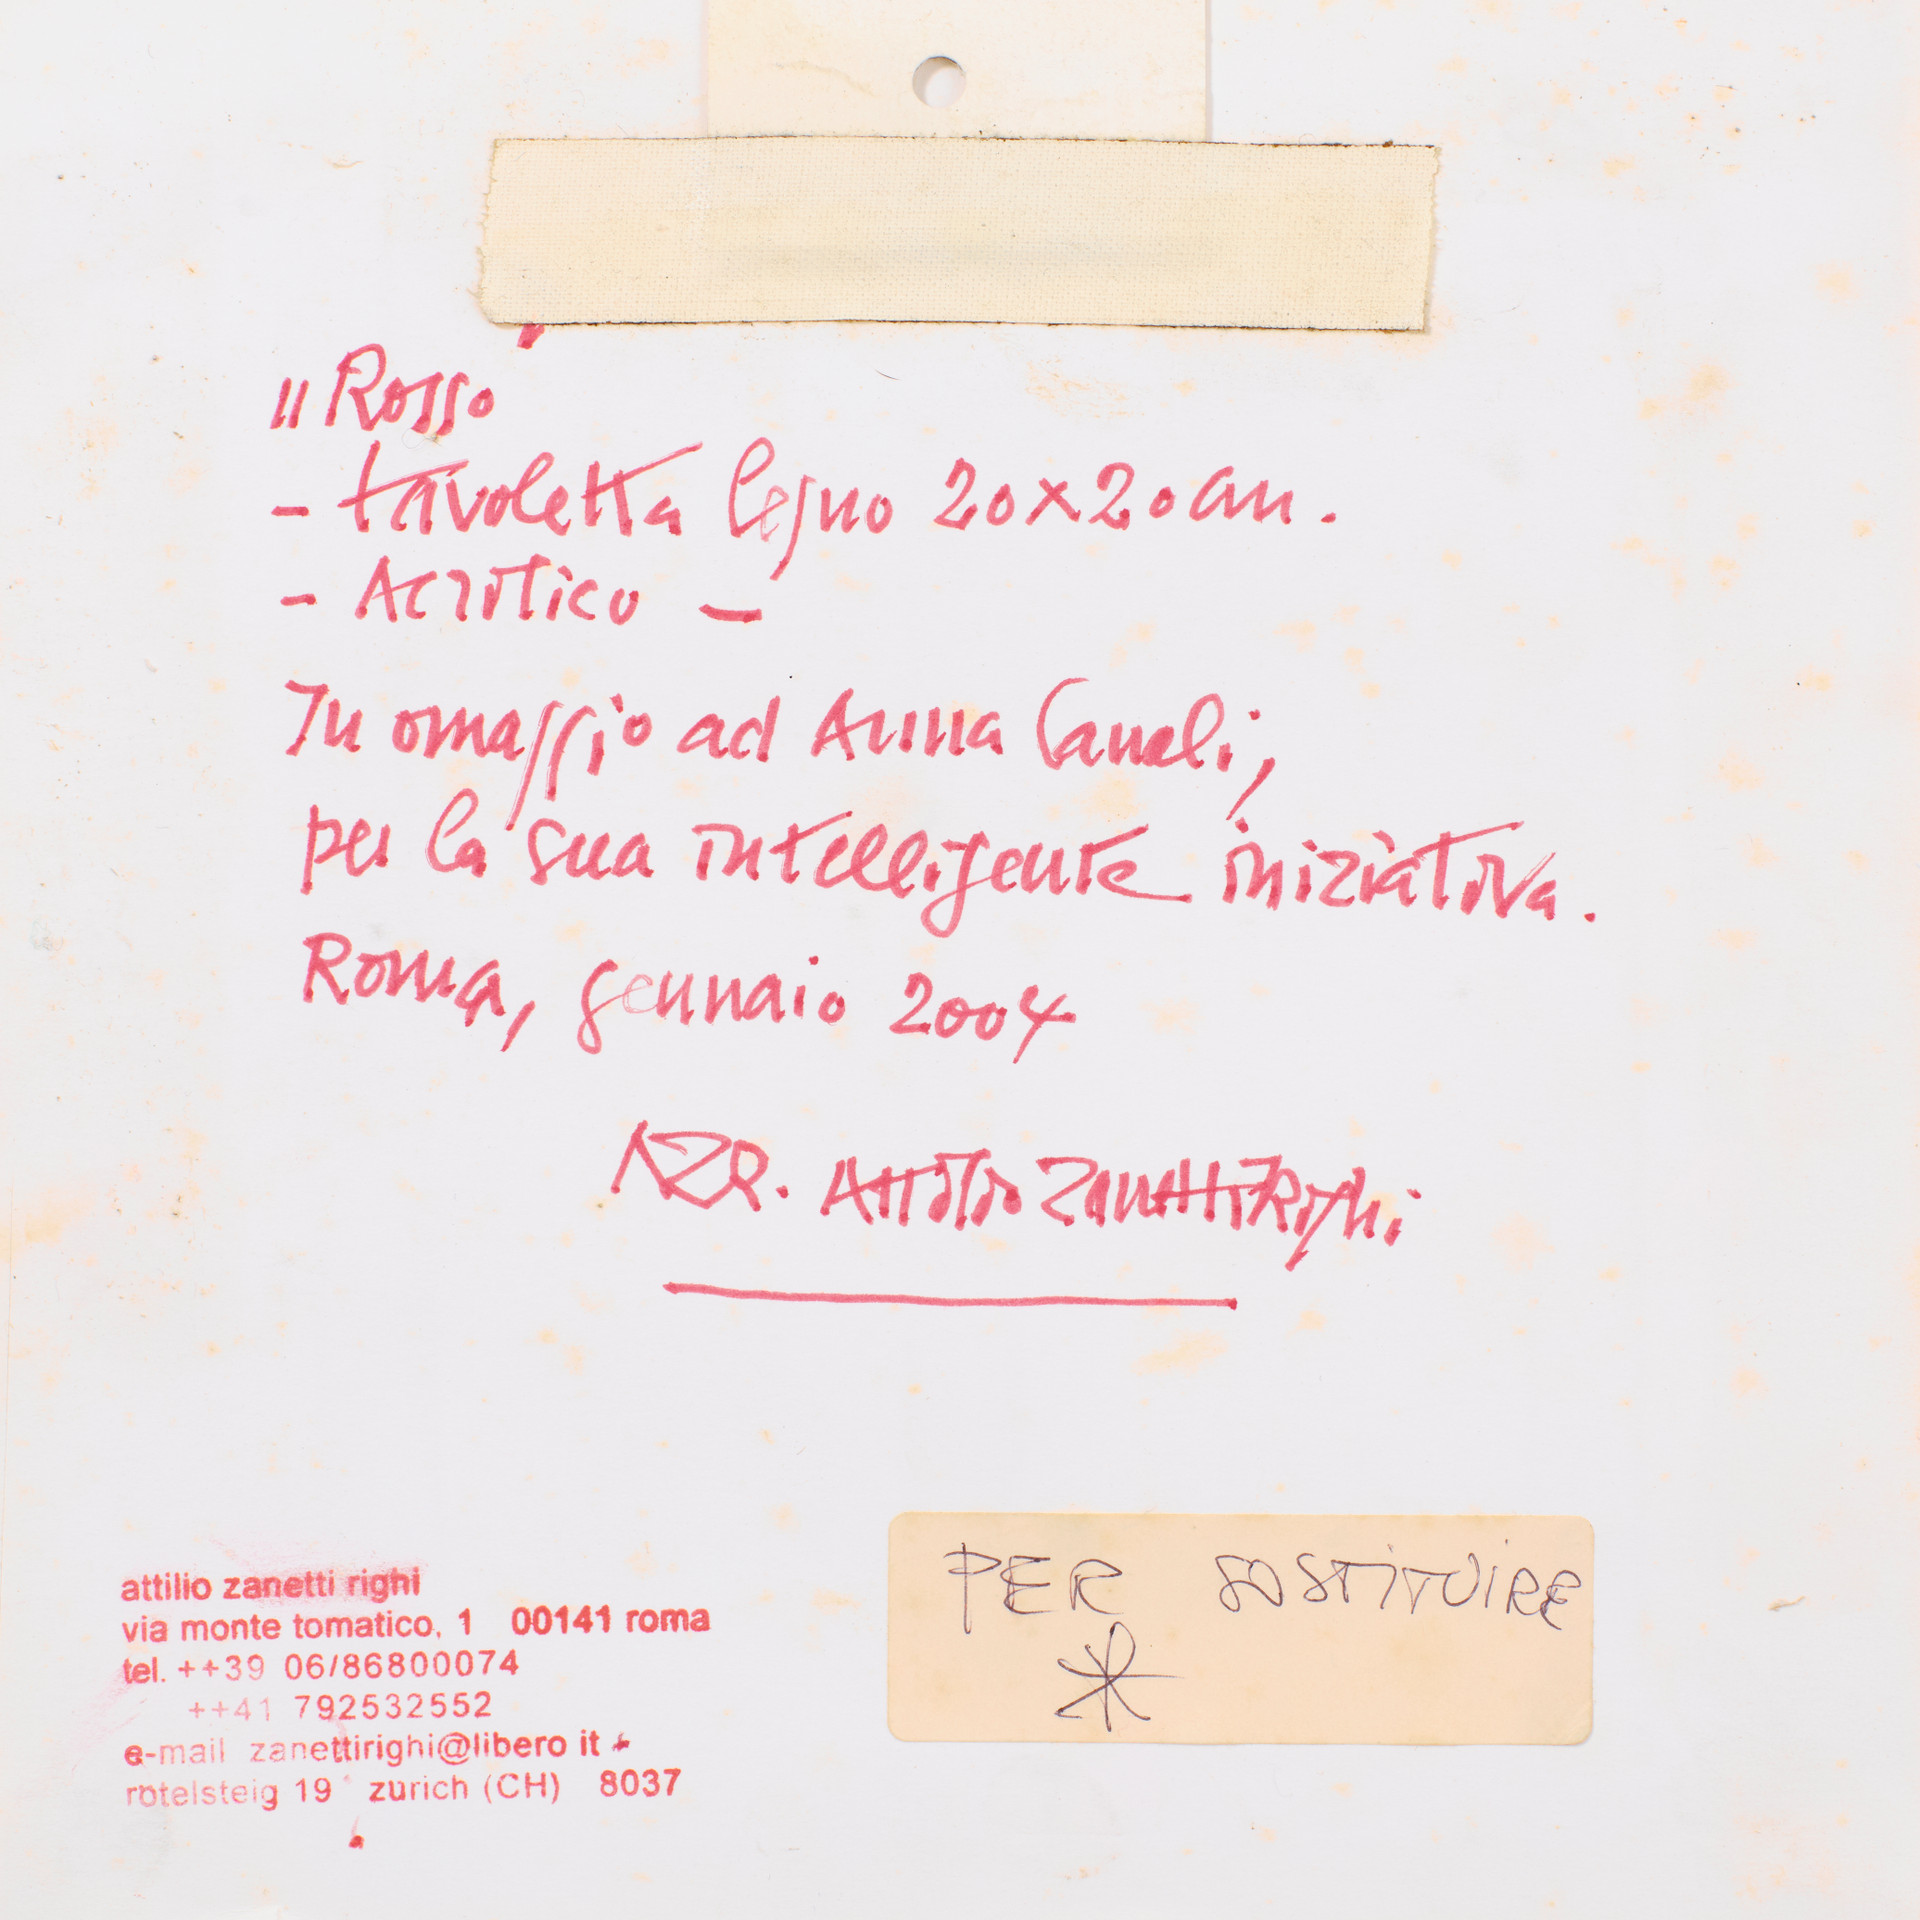 "Rosso"
- tavoletta legno 20x20 cm.
- Acrilico -
In omaggio ad Anna Canali,
per la sua intelligente iniziativa.
Roma, gennaio 2004
AZR. Attilio Zanetti Righi
attilio zanetti righi
via monte tomatico, 1 00141 roma
tel. ++39 06/86800074
++41 792532552
e-mail zanettirighi@libero it
rotelsteig 19 zurich (CH) 8037
PER SOSTITUIRE
*